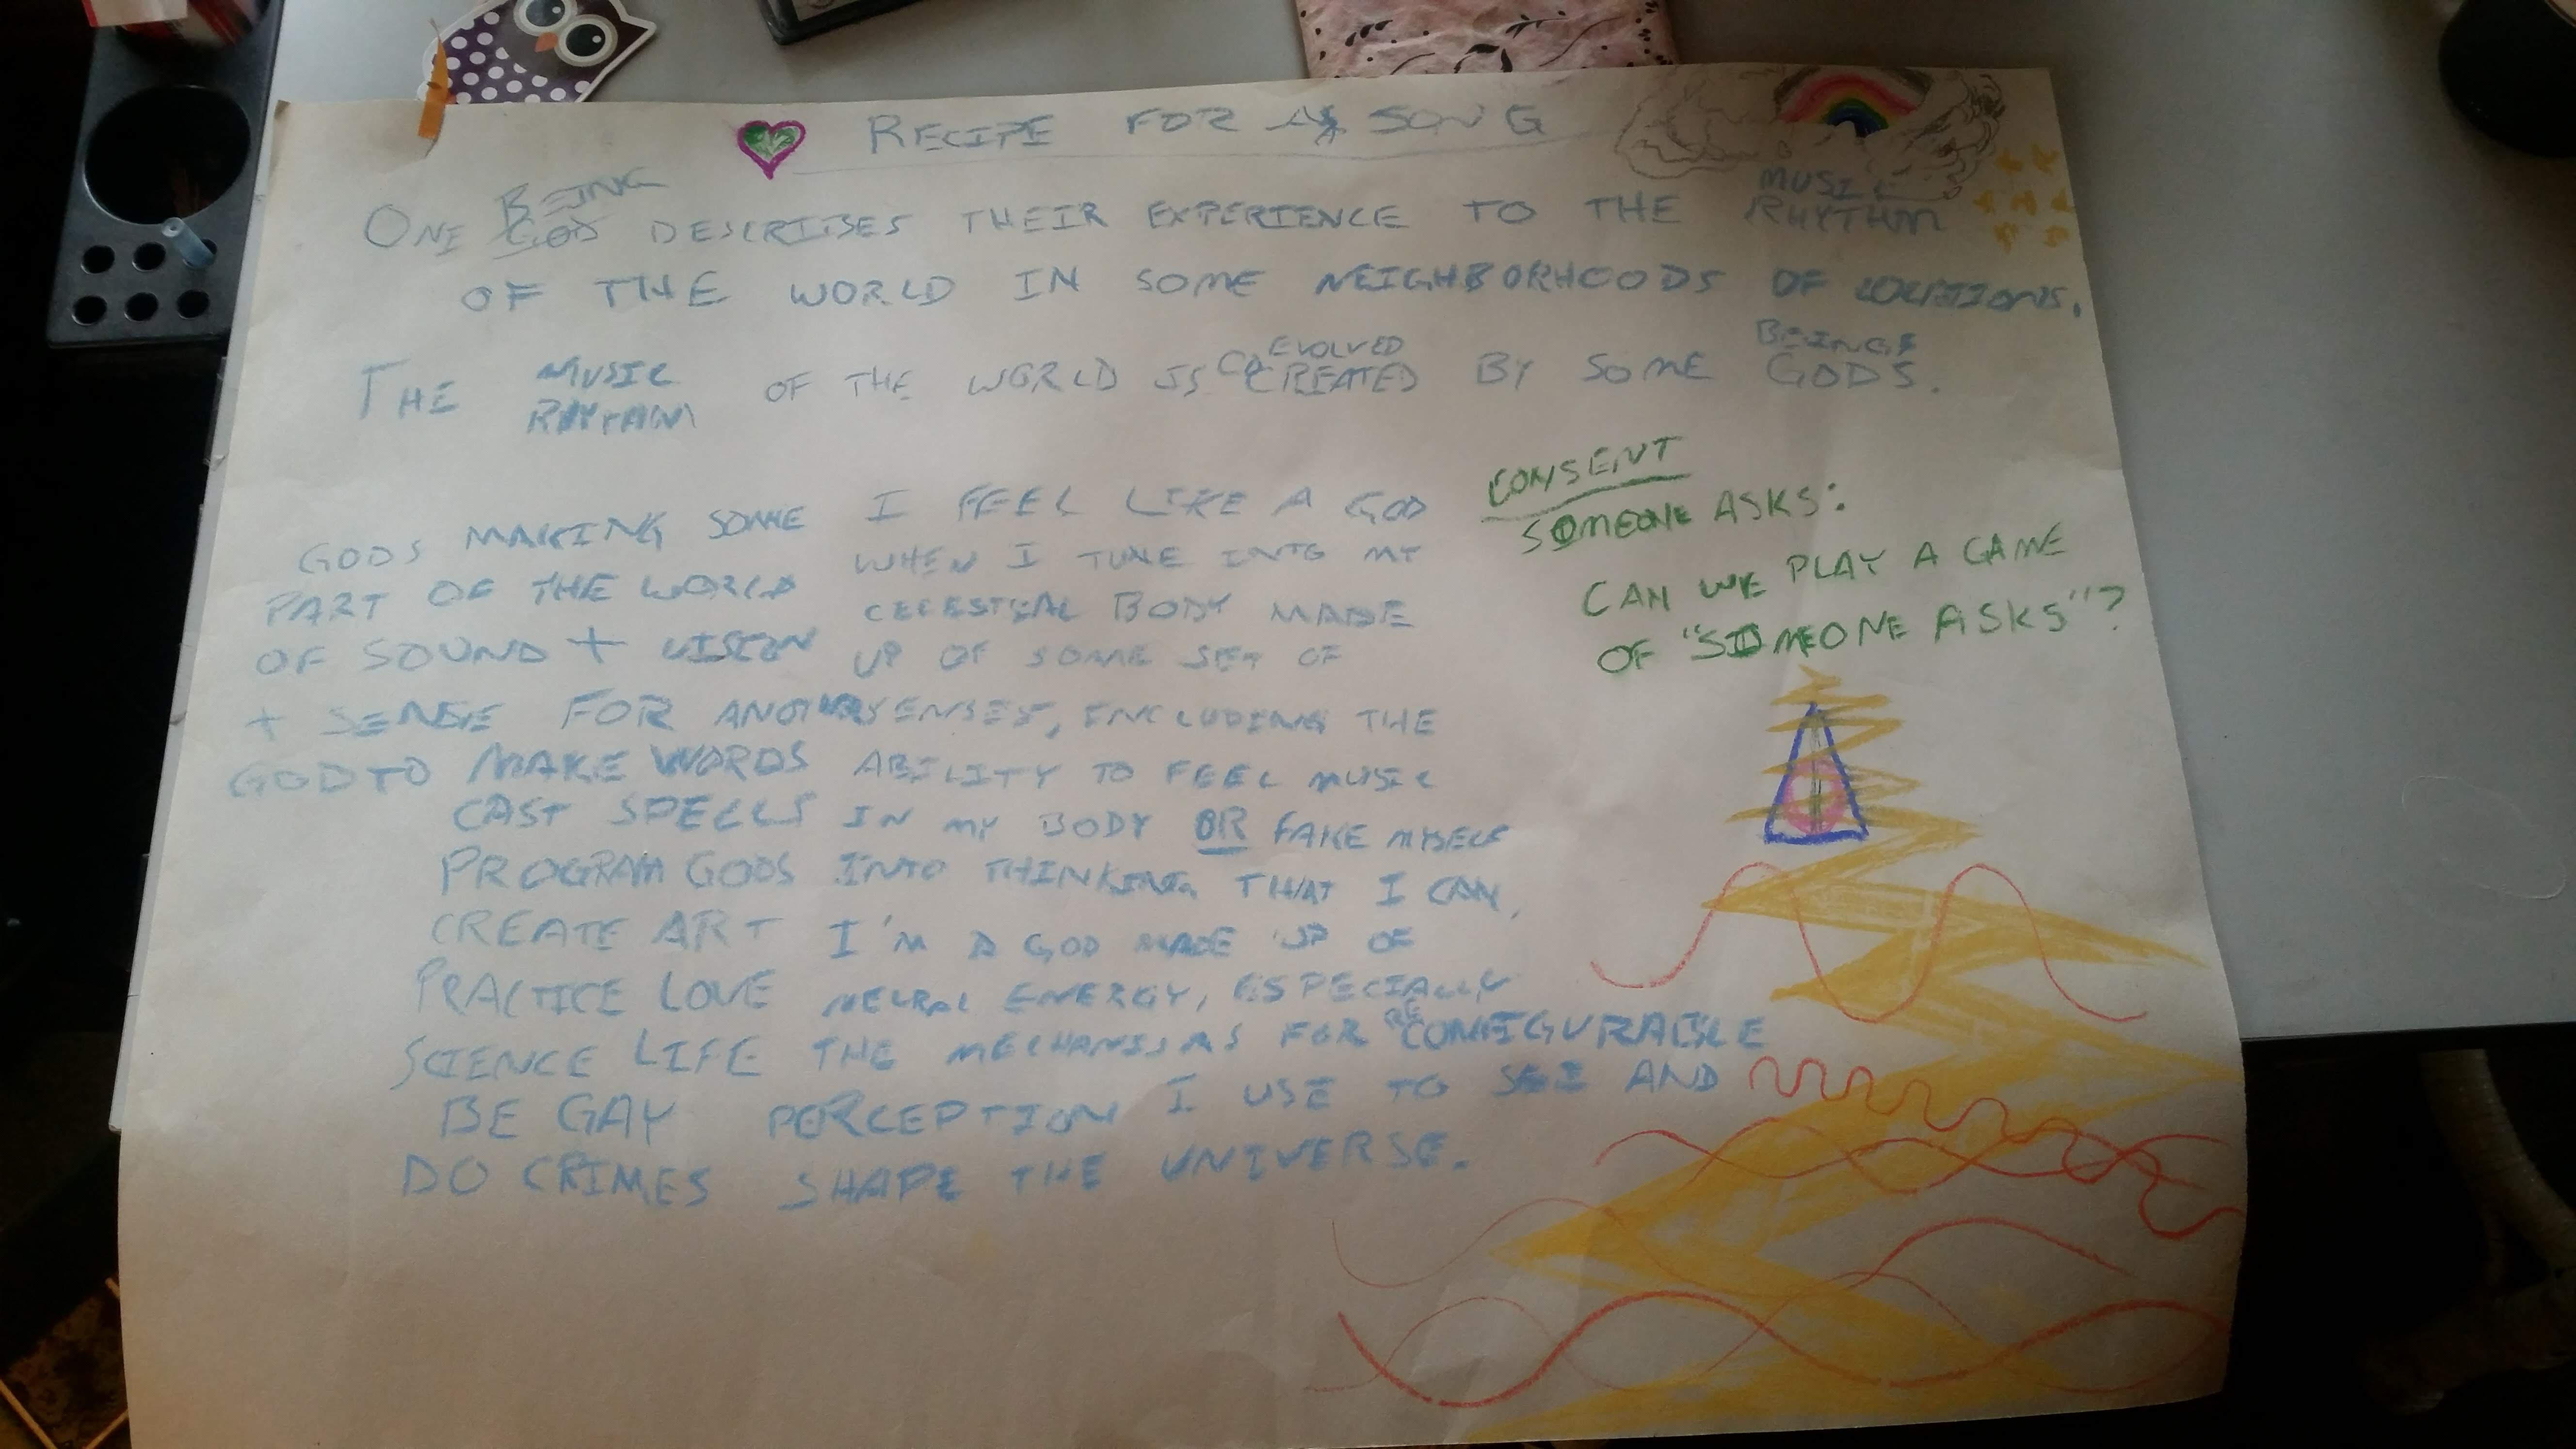 RECIPE FOR A SONG
BEING
ONE GOD DESCRIBES THEIR EXPERIENCE TO THE RHYTHM
MUSIC
OF THE WORLD IN SOME NEIGHBORHOODS OF LOCATIONS.
EVOLVED
BEINGS
THE MUSIC OF THE WORLD IS CO CREATED BY SOME GODS.
RHYTHM
GODS MAKING SOME
PART OF THE WORLD
OF SOUND + VISION
+ SENSE FOR ANOTHER
GOD TO MAKE WORDS
CAST SPELLS
PROGRAM GODS
CREATE ART
PRACTICE LOVE
SCIENCE LIFE
BE GAY
DO CRIMES
I FEEL LIKE A GOD
WHEN I TUNE INTO MY
CELESTIAL BODY MADE
UP OF SOME SET OF
SENSES, INCLUDING THE
ABILITY TO FEEL MUSIC
IN MY BODY OR FAKE MYSELF
INTO THINKING THAT I CAN,
I'M A GOD MADE UP OF
NEURAL ENERGY, ESPECIALLY
THE MECHANISMS FOR RECONFIGURABLE
PERCEPTION I USE TO SEE AND
SHAPE THE UNIVERSE.
CONSENT
SOMEONE ASKS:
CAN WE PLAY A GAME
OF "SOMEONE ASKS"?